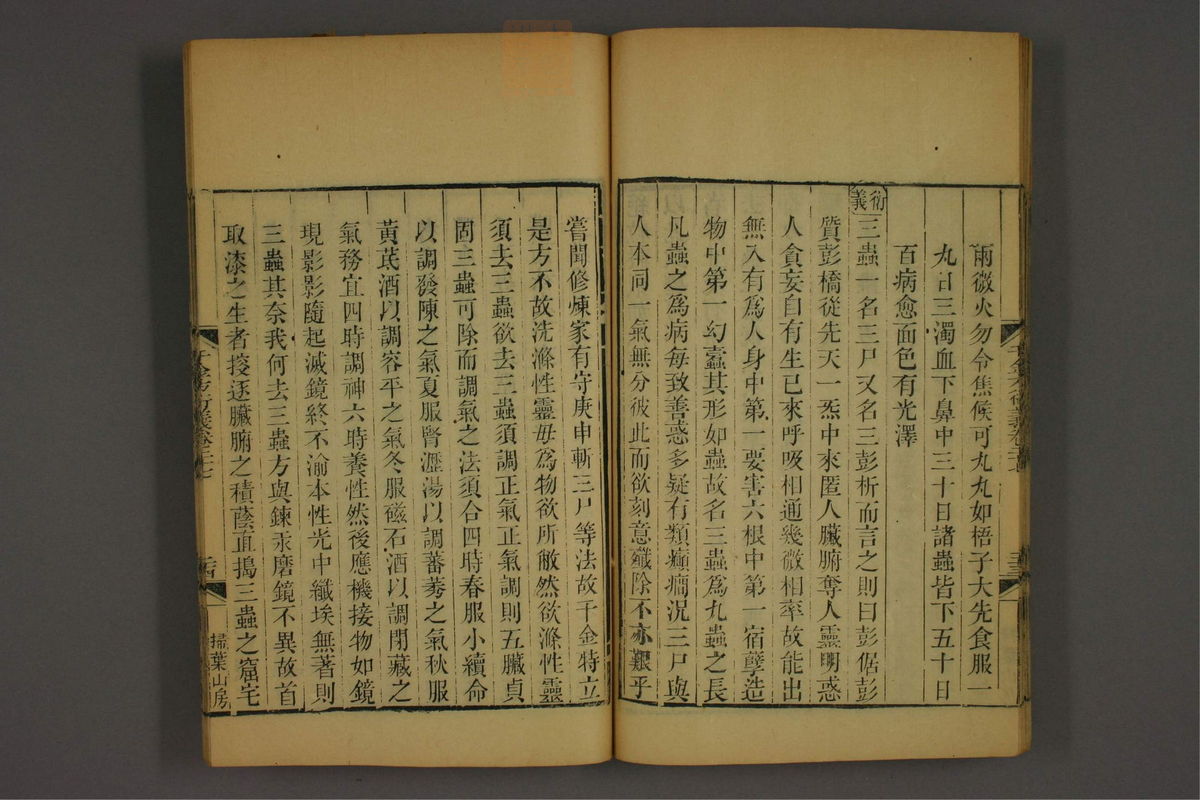 兩微火勿令焦候可丸丸如梧子大先食服一
丸日三濁血下鼻中三十日諸蟲皆下五十日
百病愈面色有光澤
衍義
三蟲一名三尸又名三彭析而言之則曰彭倨彭
質彭橋從先天一炁中來匿人臟腑奪人靈明惑
人貪妄自有生已來呼吸相通幾微相率故能出
無入有爲人身中第一要害六根中第一宿孽造
物中第一幻蠹其形如蟲故名三蟲爲九蟲之長
凡蟲之爲病每致善惑多疑有類癲癎況三尸與
人本同一氣無分彼此而欲刻意殲除不亦艱乎
嘗聞修煉家有守庚申斬三尸等法故千金特立
是方不故洗滌性靈毋爲物欲所敝然欲滌性靈
須去三蟲欲去三蟲須調正氣正氣調則五臟貞
固三蟲可除而調氣之法須合四時春服小續命
以調發陳之氣夏服腎瀝湯以調蕃莠之氣秋服
黃芪酒以調容平之氣冬服磁石酒以調閉藏之
氣務宜四時調神六時養性然後應機接物如鏡
現影影隨起滅鏡終不渝本性光中纖埃無著則
三蟲其奈我何去三蟲方與鍊汞磨鏡不異故首
取漆之生者搜逐臟腑之積蔭直搗三蟲之窟宅
千金方衍義卷二十七
掃葉山房